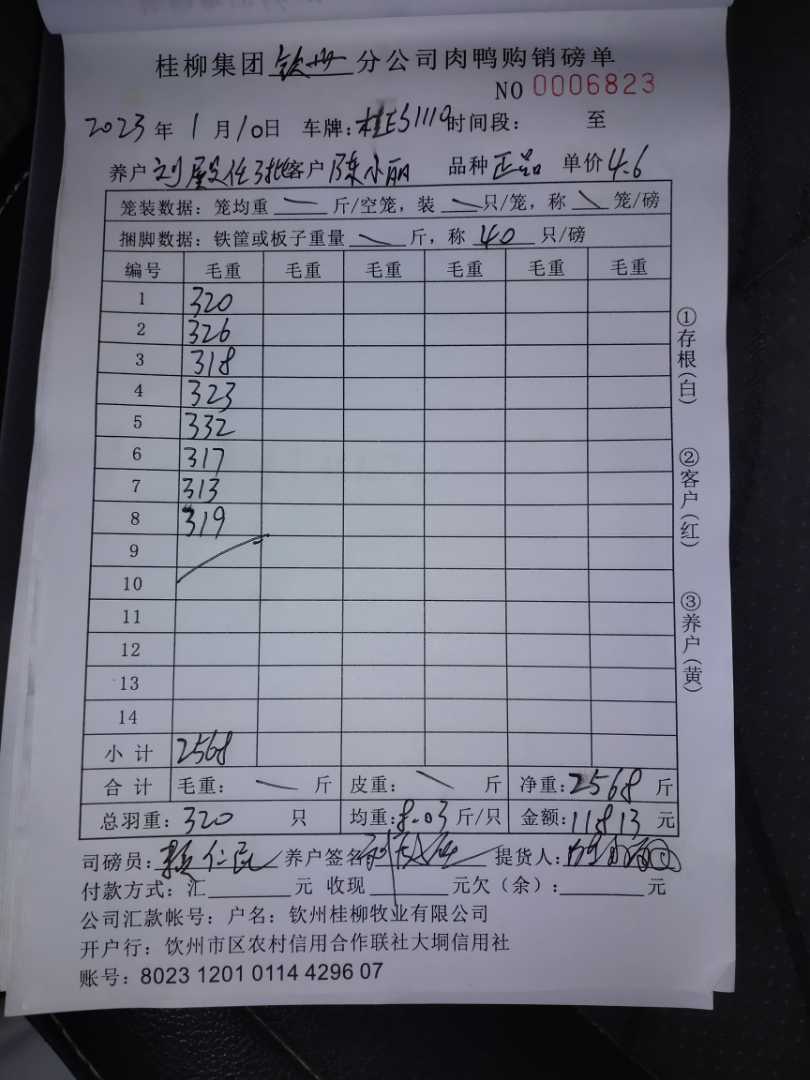 桂柳集团 钦州 分公司肉鸭购销磅单
NO 0006823
2023 年 1 月 10 日 车牌: 桂ES1110 时间段: 至
养户 刘 任3批 客户 陈小丽 品种 正品 单价 4.6
笼装数据: 笼均重 — 斤/空笼, 装 — 只/笼, 称 — 笼/磅
捆脚数据: 铁筐或板子重量 — 斤, 称 40 只/磅
编号 毛重 毛重 毛重 毛重 毛重 毛重
1 320
2 326
3 318
4 323
5 332
6 317
7 313
8 319
9
10
11
12
13
14
小计 2568
合计 毛重: — 斤 皮重: — 斤 净重: 2568 斤
总羽重: 320 只 均重: 8.03 斤/只 金额: 11813 元
司磅员: 仁民 养户签名 提货人:
付款方式: 汇 元 收现 元欠(余): 元
公司汇款帐号: 户名: 钦州桂柳牧业有限公司
开户行: 饮州市区农村信用合作联社大垌信用社
账号: 8023 1201 0114 4296 07
①存根(白)
②客户(红)
③养户(黄)